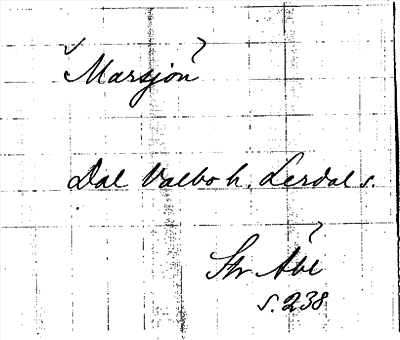 "Marsjön"
Dal Valbo h. Lerdal s.
Str Åbl
s. 238